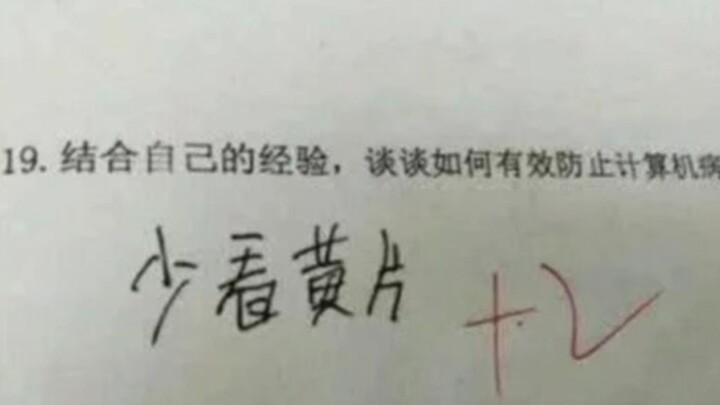 19. 结合自己的经验，谈谈如何有效防止计算机病
少看黄片 +2